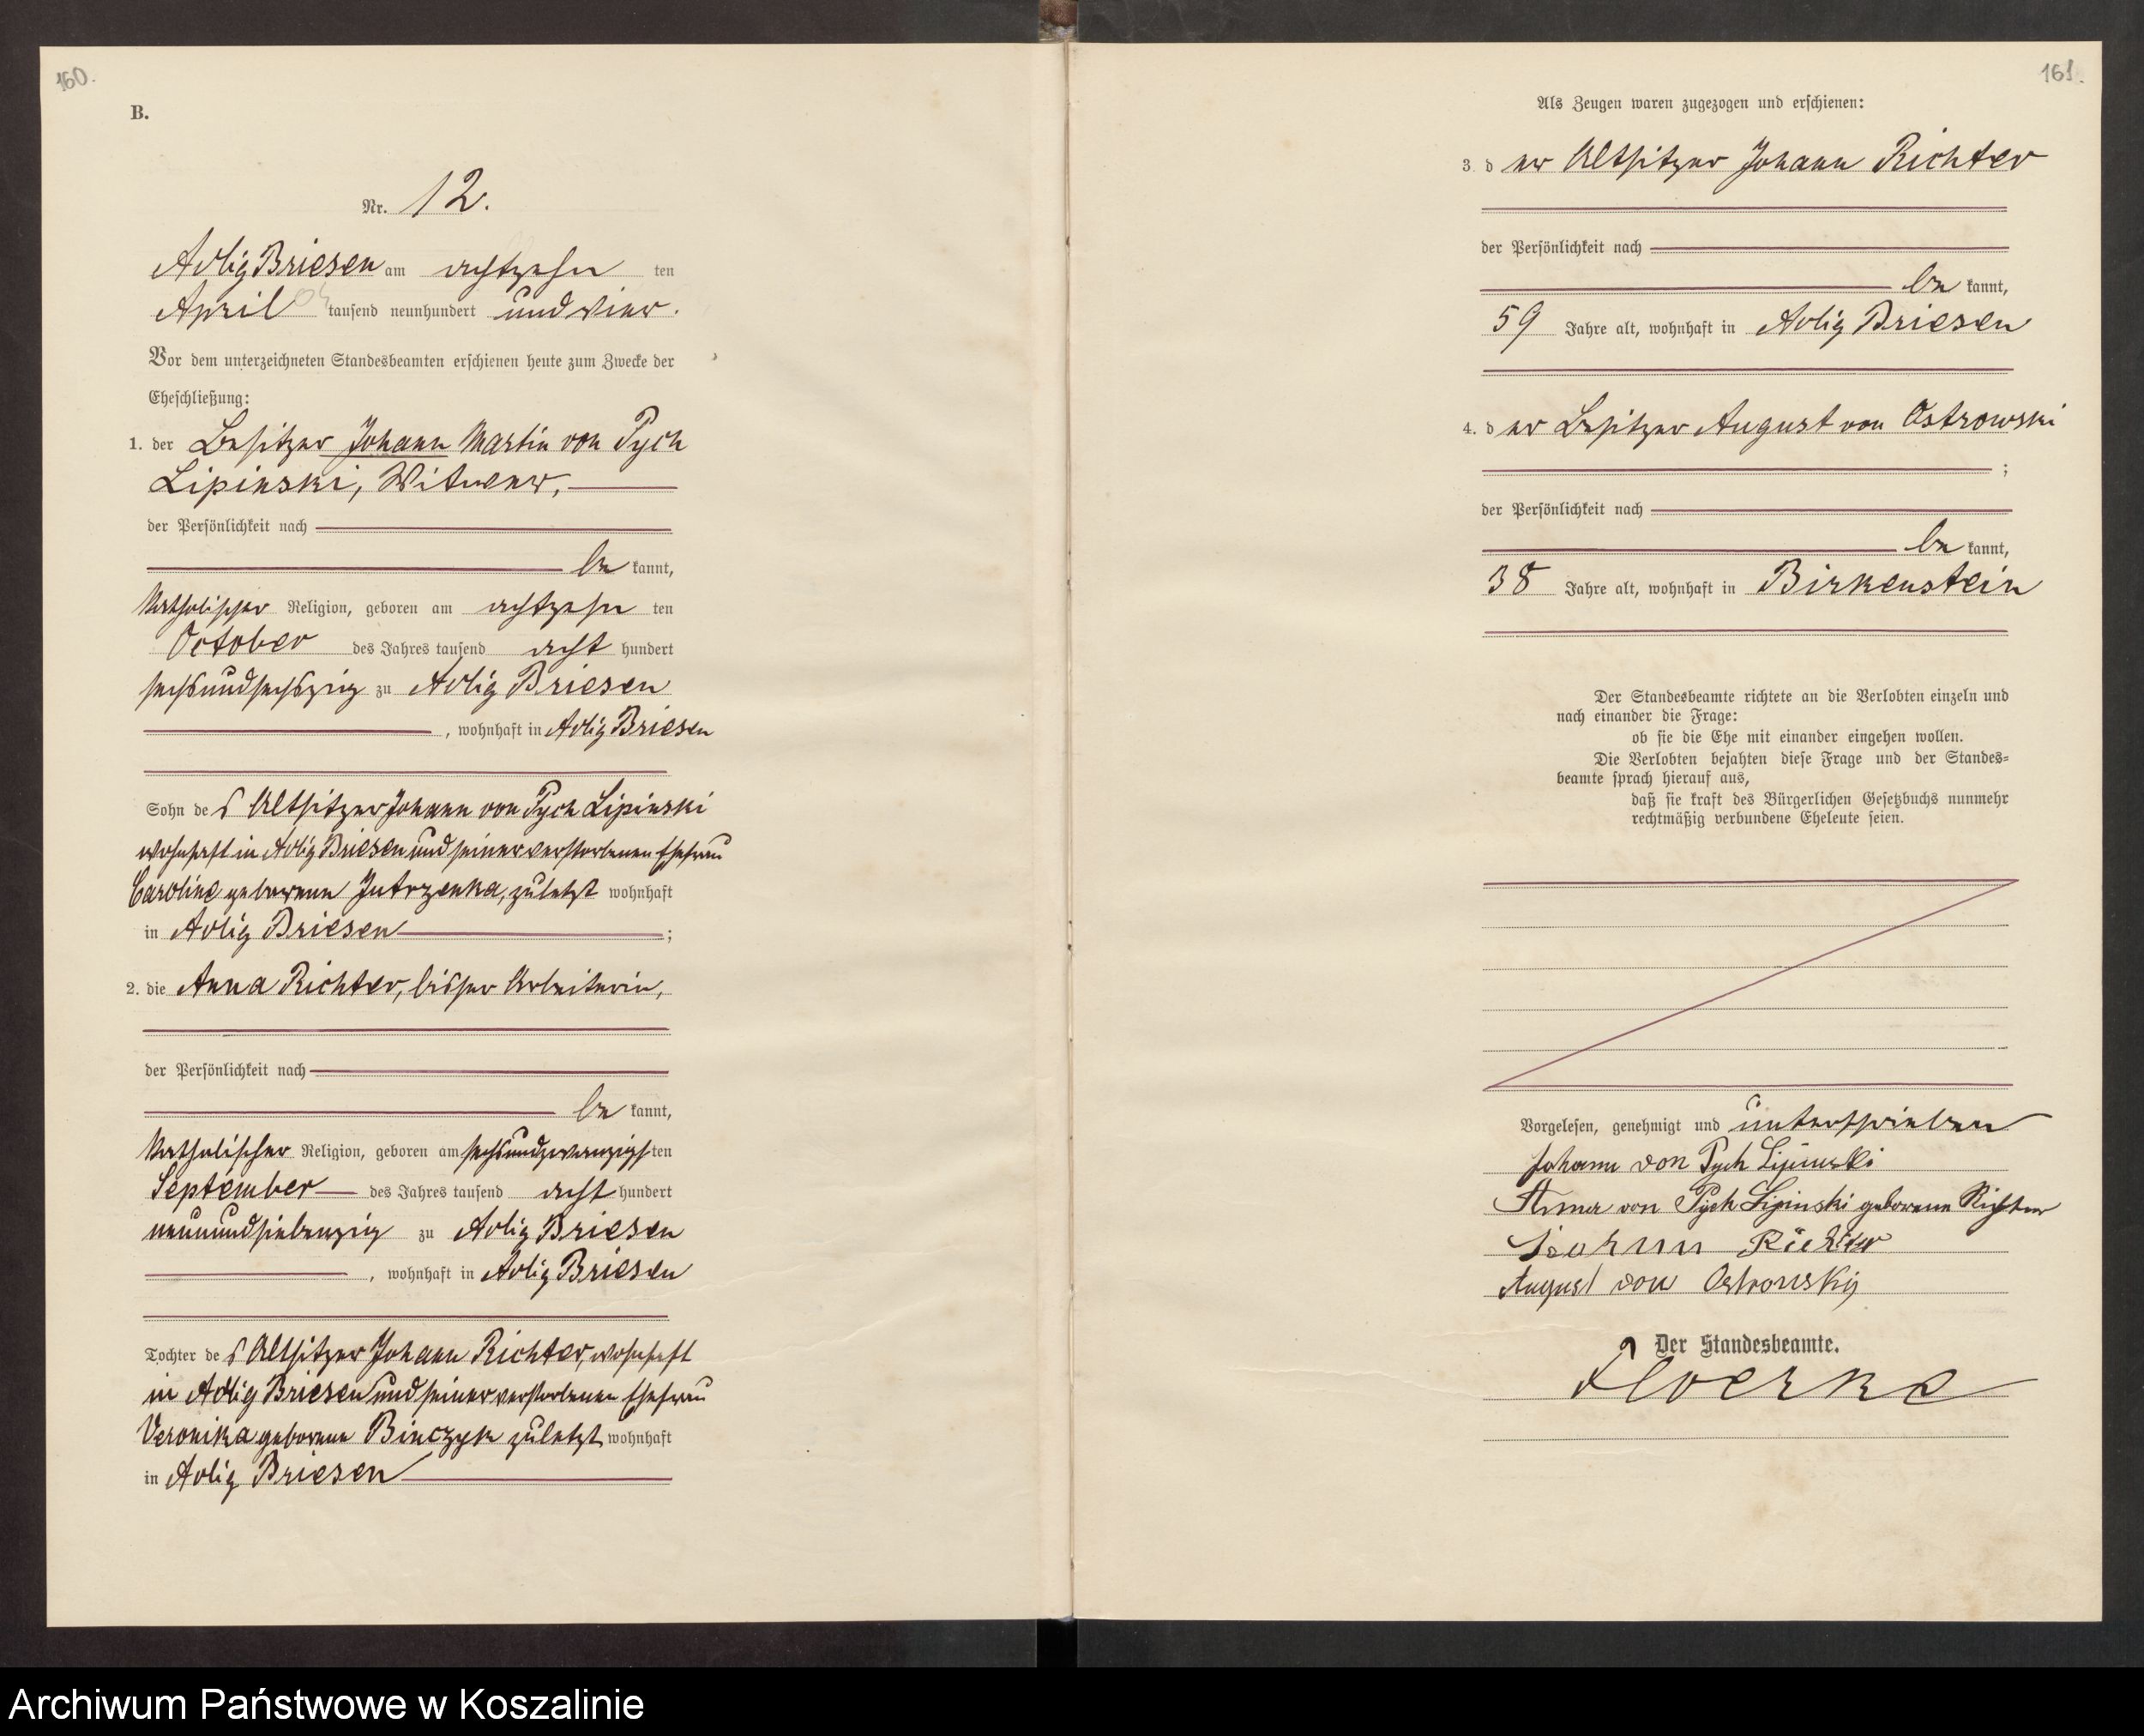 160.
B.
Nr. 12.
Adlig Briesen am achtzehn ten
April tausend neunhundert und vier.
Vor dem unterzeichneten Standesbeamten erschienen heute zum Zwecke der
Eheschließung:
1. der Besitzer Johann Martin von Pych
Lipinski, Witwer,
der Persönlichkeit nach
be kannt,
katholischer Religion, geboren am achtzehn ten
October des Jahres tausend acht hundert
sechsundsechszig zu Adlig Briesen
, wohnhaft in Adlig Briesen
Sohn des Altsitzer Johann von Pych Lipinski
wohnhaft in Adlig Briesen und seiner verstorbenen Ehefrau
Caroline geborene Jutrzenka, zuletzt wohnhaft
in Adlig Briesen ;
2. die Anna Richter, bisher Arbeiterin,
der Persönlichkeit nach
be kannt,
katholischer Religion, geboren am sechsundzwanzigsten
September des Jahres tausend acht hundert
neunundsiebenzig zu Adlig Briesen
, wohnhaft in Adlig Briesen
Tochter des Altsitzer Johann Richter, wohnhaft
in Adlig Briesen und seiner verstorbenen Ehefrau
Veronika geborene Binczyk zuletzt wohnhaft
in Adlig Briesen
161.
Als Zeugen waren zugezogen und erschienen:
3. der Altsitzer Johann Richter
der Persönlichkeit nach
be kannt,
59 Jahre alt, wohnhaft in Adlig Briesen
4. der Besitzer August von Ostrowski
;
der Persönlichkeit nach
be kannt,
38 Jahre alt, wohnhaft in Birkenstein
Der Standesbeamte richtete an die Verlobten einzeln und
nach einander die Frage:
ob sie die Ehe mit einander eingehen wollen.
Die Verlobten bejahten diese Frage und der Standes-
beamte sprach hierauf aus,
daß sie kraft des Bürgerlichen Gesetzbuchs nunmehr
rechtmäßig verbundene Eheleute seien.
Vorgelesen, genehmigt und unterschrieben
Johann von Pych Lipinski
Anna von Pych Lipinski geborene Richter
Richter
August von Ostrowskij
Der Standesbeamte.
Archiwum Państwowe w Koszalinie